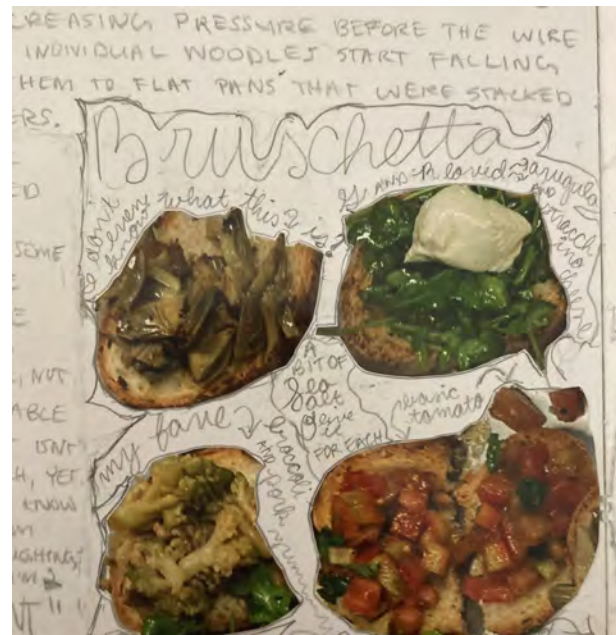 CREASING PRESSURE BEFORE THE WIRE
INDIVIDUAL NOODLES START FALLING
THEM TO FLAT PANS THAT WERE STACKED
ERS.
Bruschetta
I don't
even
know what this is?
G AND R loved arugula
AND
stracch
ino
cheese
SOME
A
BIT OF
Sea
salt
FOR EACH
basic
tomato
my fave
broccoli
AND
pork
NOT
ABLE
ISNT
H, YET
KNOW
UGHING,